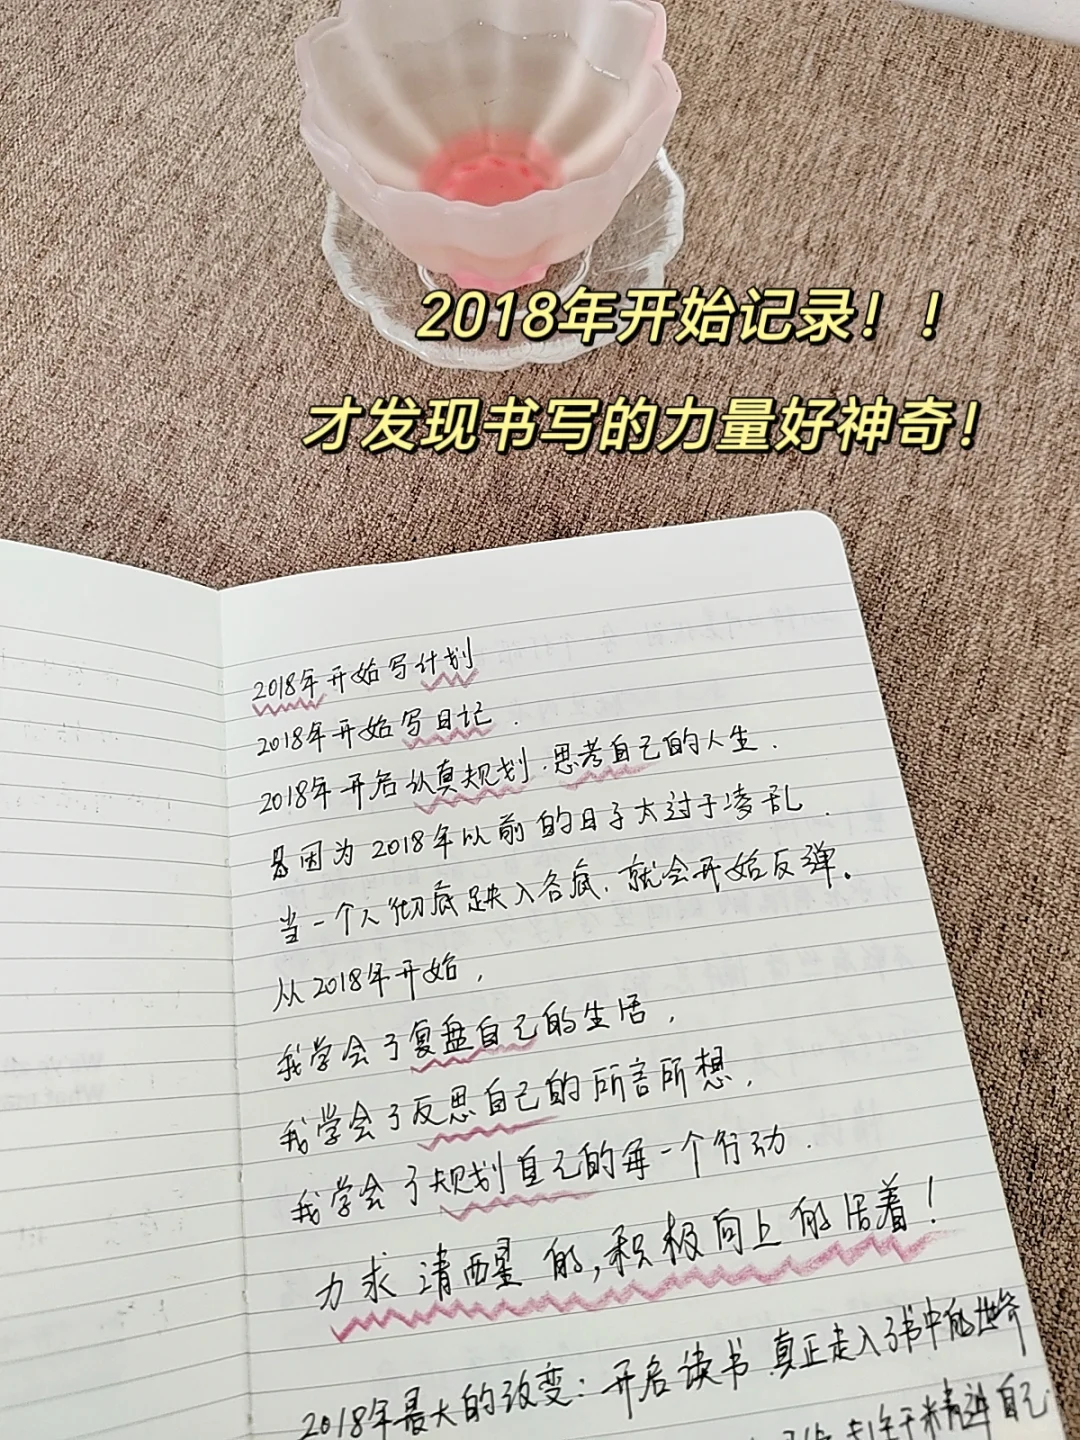 2018年开始记录！！
才发现书写的力量好神奇！
2018年开始写计划
2018年开始写日记.
2018年开启认真规划.思考自己的人生.
是因为2018年以前的日子太过于凌乱.
当一个人彻底跌入谷底.就会开始反弹。
从2018年开始,
我学会了复盘自己的生活,
我学会了反思自己的所言所想,
我学会了规划自己的每一个行动.
力求清醒的,积极向上的活着!
2018年最大的改变:开启读书.真正走入了书中的世界
精进自己.